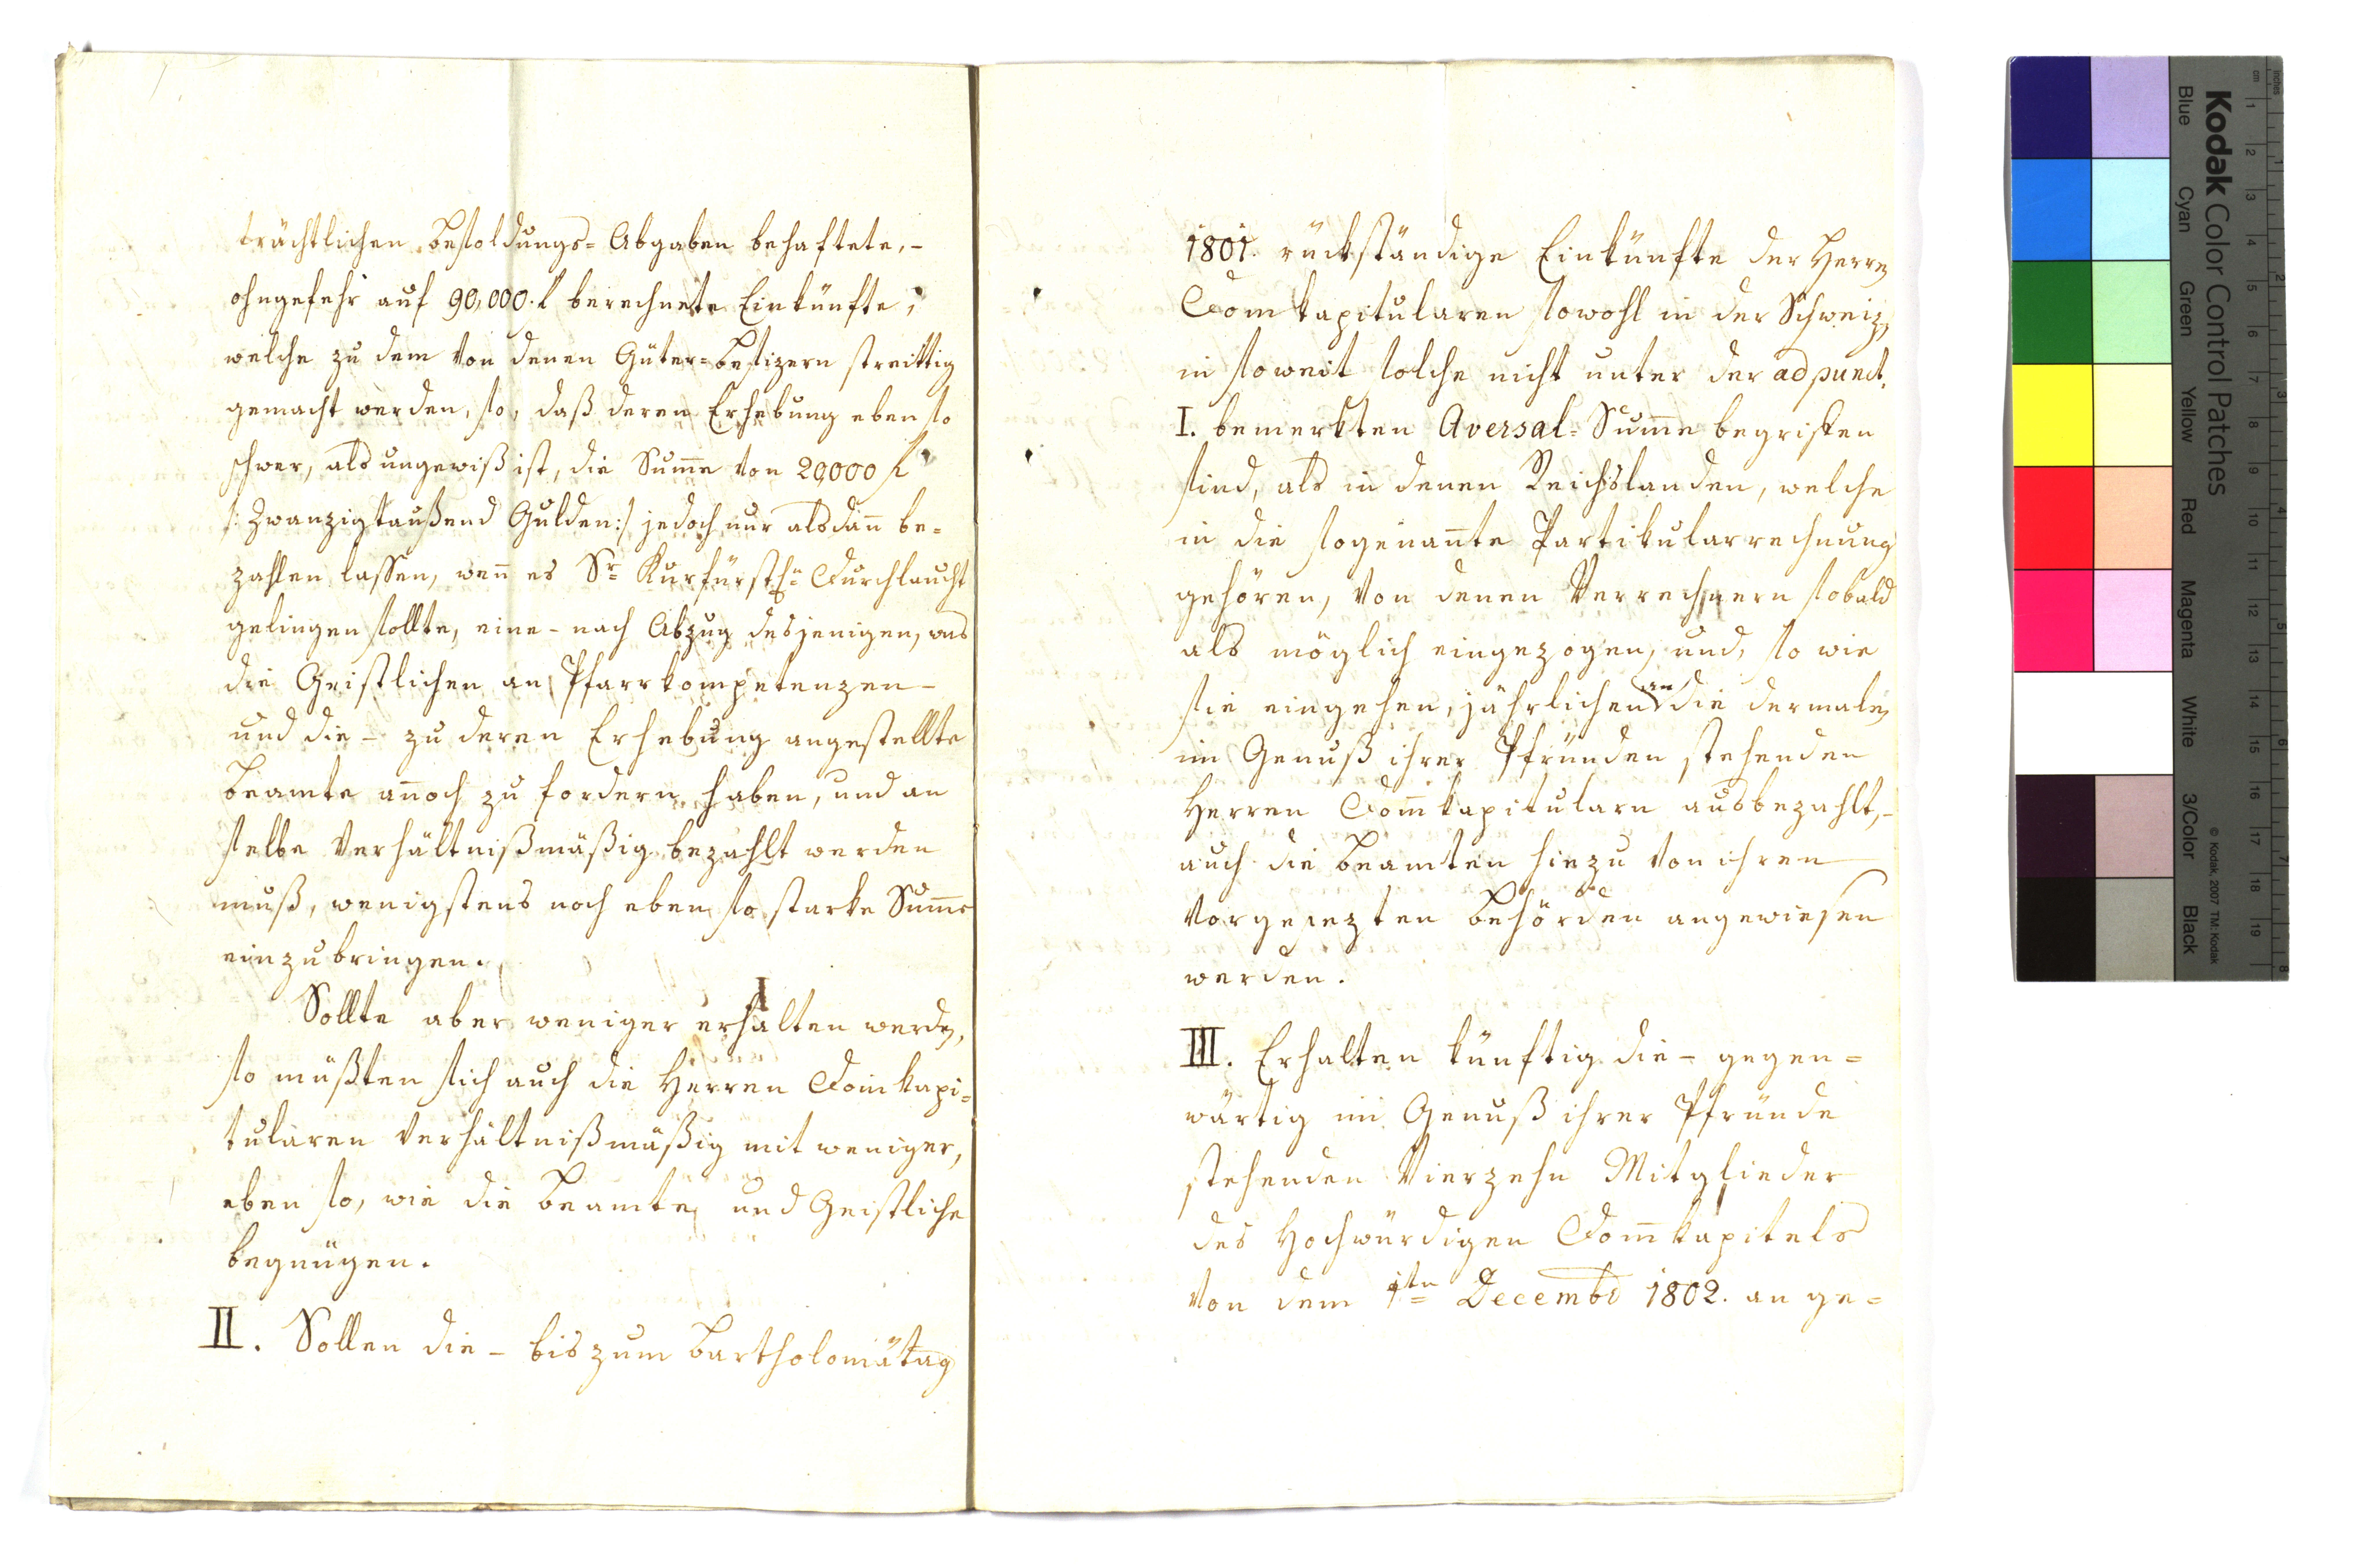 trächtlichen Besoldungs=Abgaben behaftete, –
ohngefehr auf 90,000. f berechnete Einkünfte,
welche zu dem von denen Güter=Besizern streittig
gemacht werden, so, daß deren Erhebung eben so
schwer, als ungewiß ist, die Sum̄e von 20,000 f
/: Zwanzigtaußend Gulden :/ jedoch nur alsdan̄ be=
zahlen lassen, wen̄ es Sr. Kurfürstln. Durchlaucht
gelingen sollte, eine – nach Abzug desjenigen, was
die Geistlichen an Pfarrkompetenzen –
und die – zu deren Erhebung angestellte
Beamte an̄och zu fordern haben, und an
selbe verhältnißmäßig bezahlt werden
muß, wenigstens noch eben so starke Sum̄e
einzubringen.
Sollte aber weniger erhalten werden,
so müßten sich auch die Herren Domkapi=
tularen verhältnißmäßig mit weniger,
eben so, wie die Beamten und Geistliche
begnügen.
II. Sollen die – bis zum Bartholomätag
1801. rückständige Einkünfte der Herren
Domkapitularen sowohl in der Schweiz,
in soweit solche nicht unter der ad punct.
I. bemerkten Aversal=Sum̄e begriffen
sind, als in denen Reichslanden, welche
in die sogenan̄te Partikularrechnung
gehören, von denen Verrechnern sobald
als möglich eingezogen, und, so wie
sie eingehen, jährlichen an die dermalen
im Genuß ihrer Pfründen stehenden
Herren Dom̄kapitularn ausbezahlt, –
auch die Beamten hiezu von ihren
vorgesezten Behörden angewiesen
werden.
III. Erhalten künftig die – gegen=
wärtig im Genuß ihrer Pfründe
stehenden Vierzehn Mitglieder
des Hochwürdigen Dom̄kapitels
von dem 1ten Decembr 1802. an ge=
Kodak Color Control Patches
Blue Cyan Green Yellow Red Magenta White 3/Color Black
© Kodak, 2007 TM: Kodak
inches
cm
1 2 3 4 5 6 7 8 9 10 11 12 13 14 15 16 17 18 19
1 2 3 4 5 6 7 8